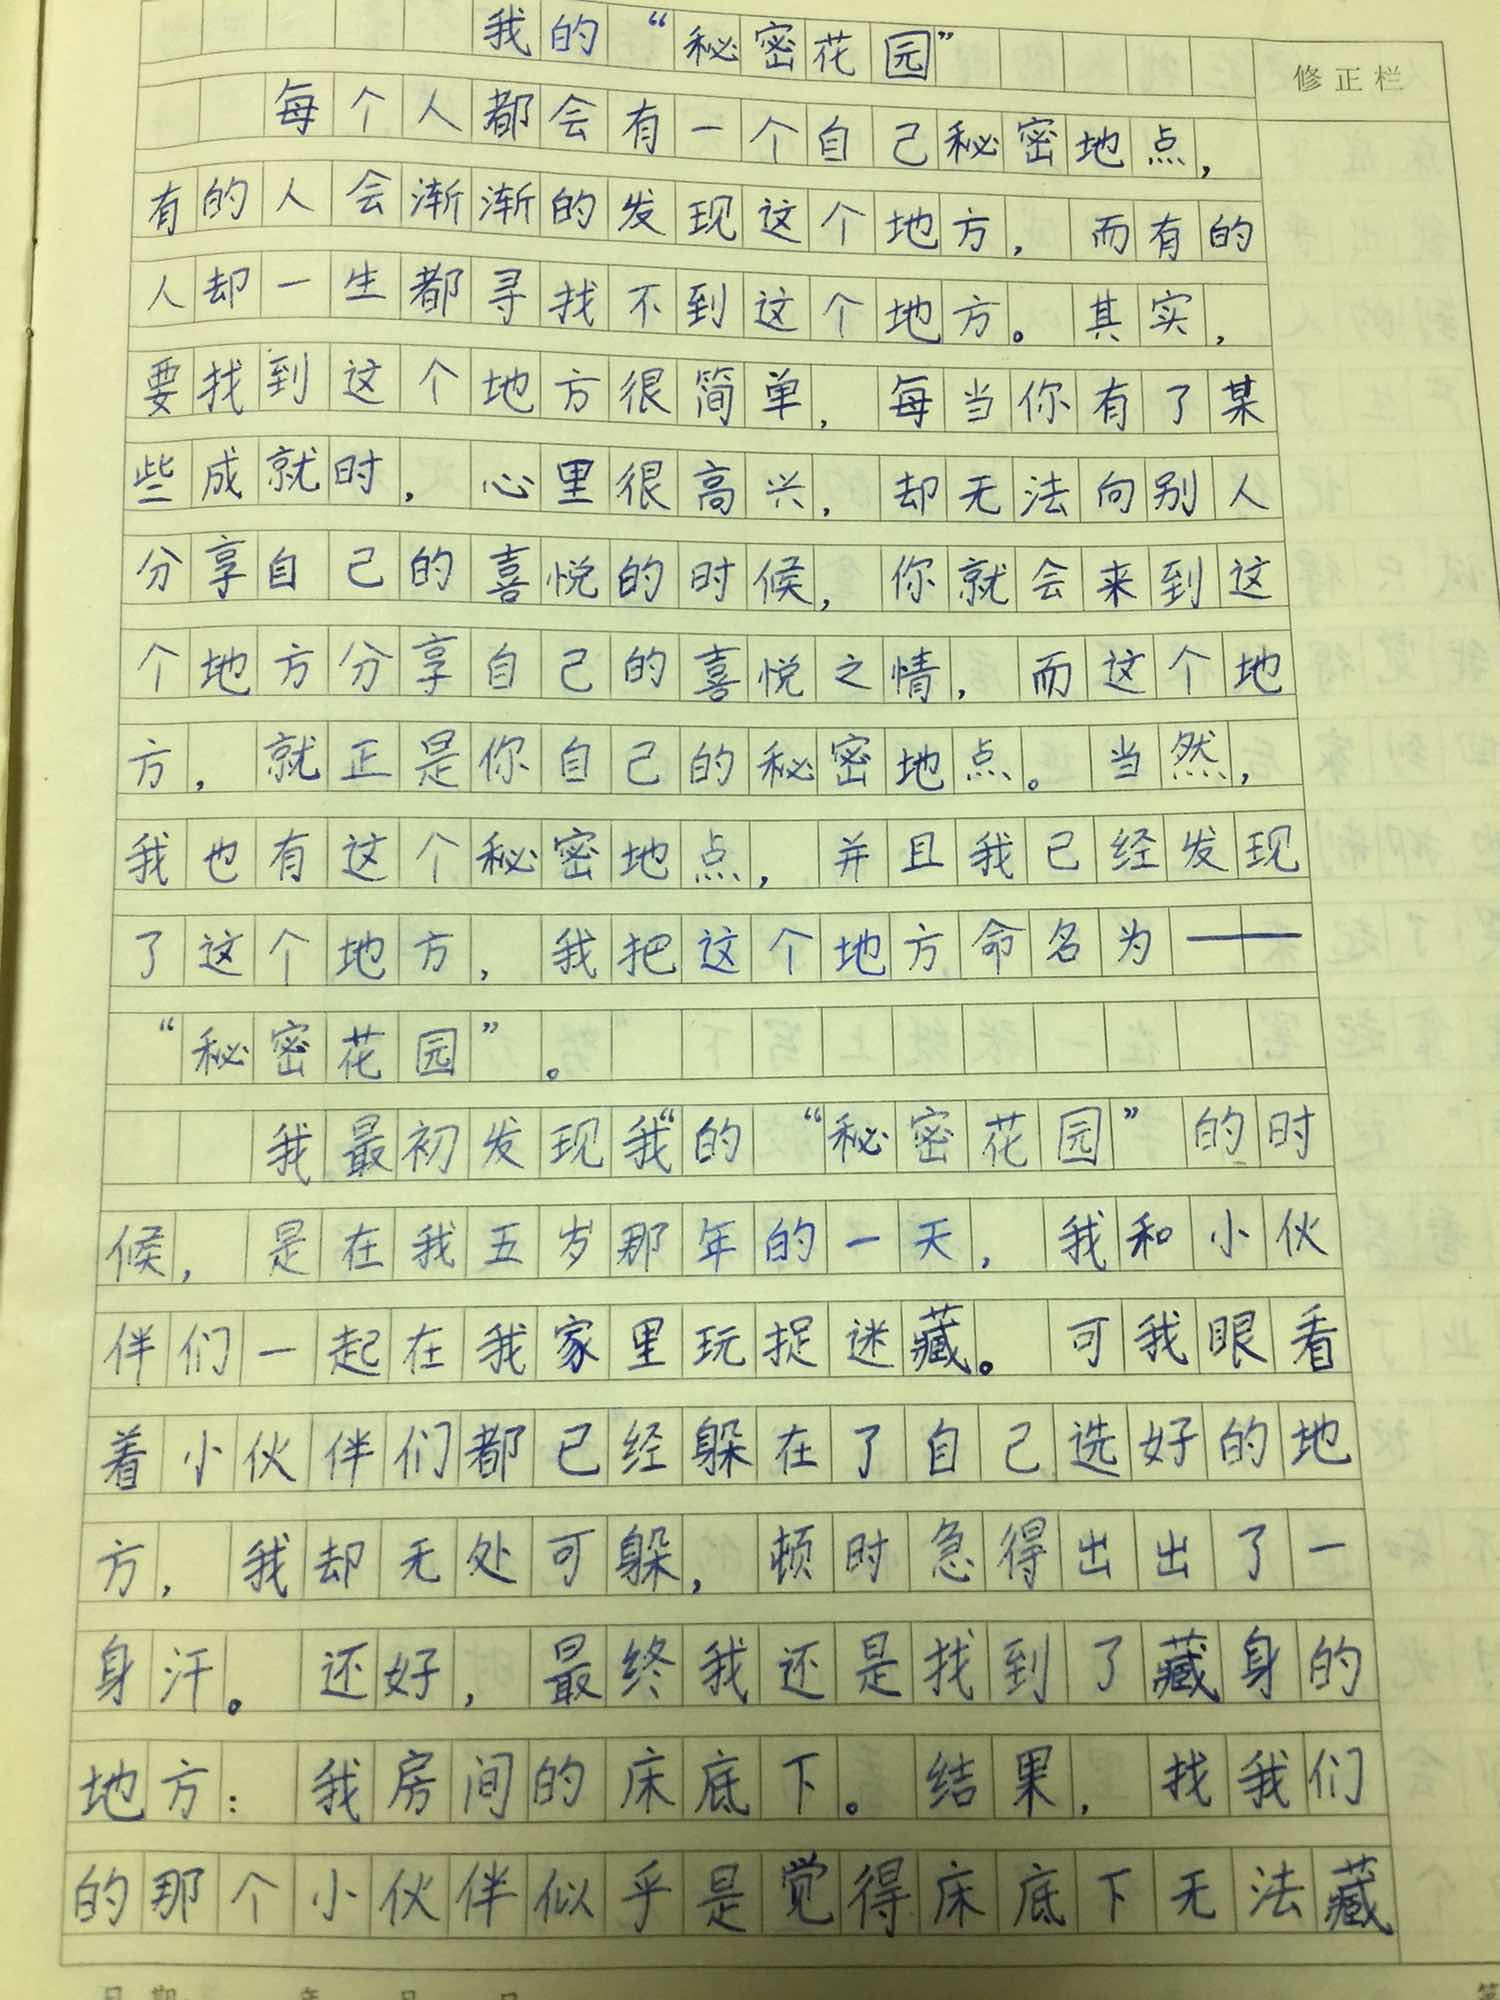 我的“秘密花园”
修正栏
每个人都会有一个自己秘密地点，
有的人会渐渐的发现这个地方，而有的
人却一生都寻找不到这个地方。其实，
要找到这个地方很简单，每当你有了某
些成就时，心里很高兴，却无法向别人
分享自己的喜悦的时候，你就会来到这
个地方分享自己的喜悦之情，而这个地
方，就正是你自己的秘密地点。当然，
我也有这个秘密地点，并且我已经发现
了这个地方，我把这个地方命名为——
“秘密花园”。
我最初发现我“的“秘密花园”的时
候，是在我五岁那年的一天，我和小伙
伴们一起在我家里玩捉迷藏。可我眼看
着小伙伴们都已经躲在了自己选好的地
方，我却无处可躲，顿时急得出出了一
身汗。还好，最终我还是找到了藏身的
地方：我房间的床底下。结果，找我们
的那个小伙伴似乎是觉得床底下无法藏